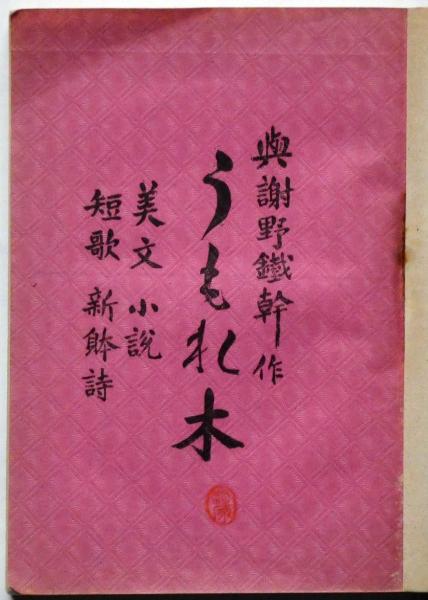 與謝野鐵幹作
うもれ木
美文 小說
短歌 新躰詩